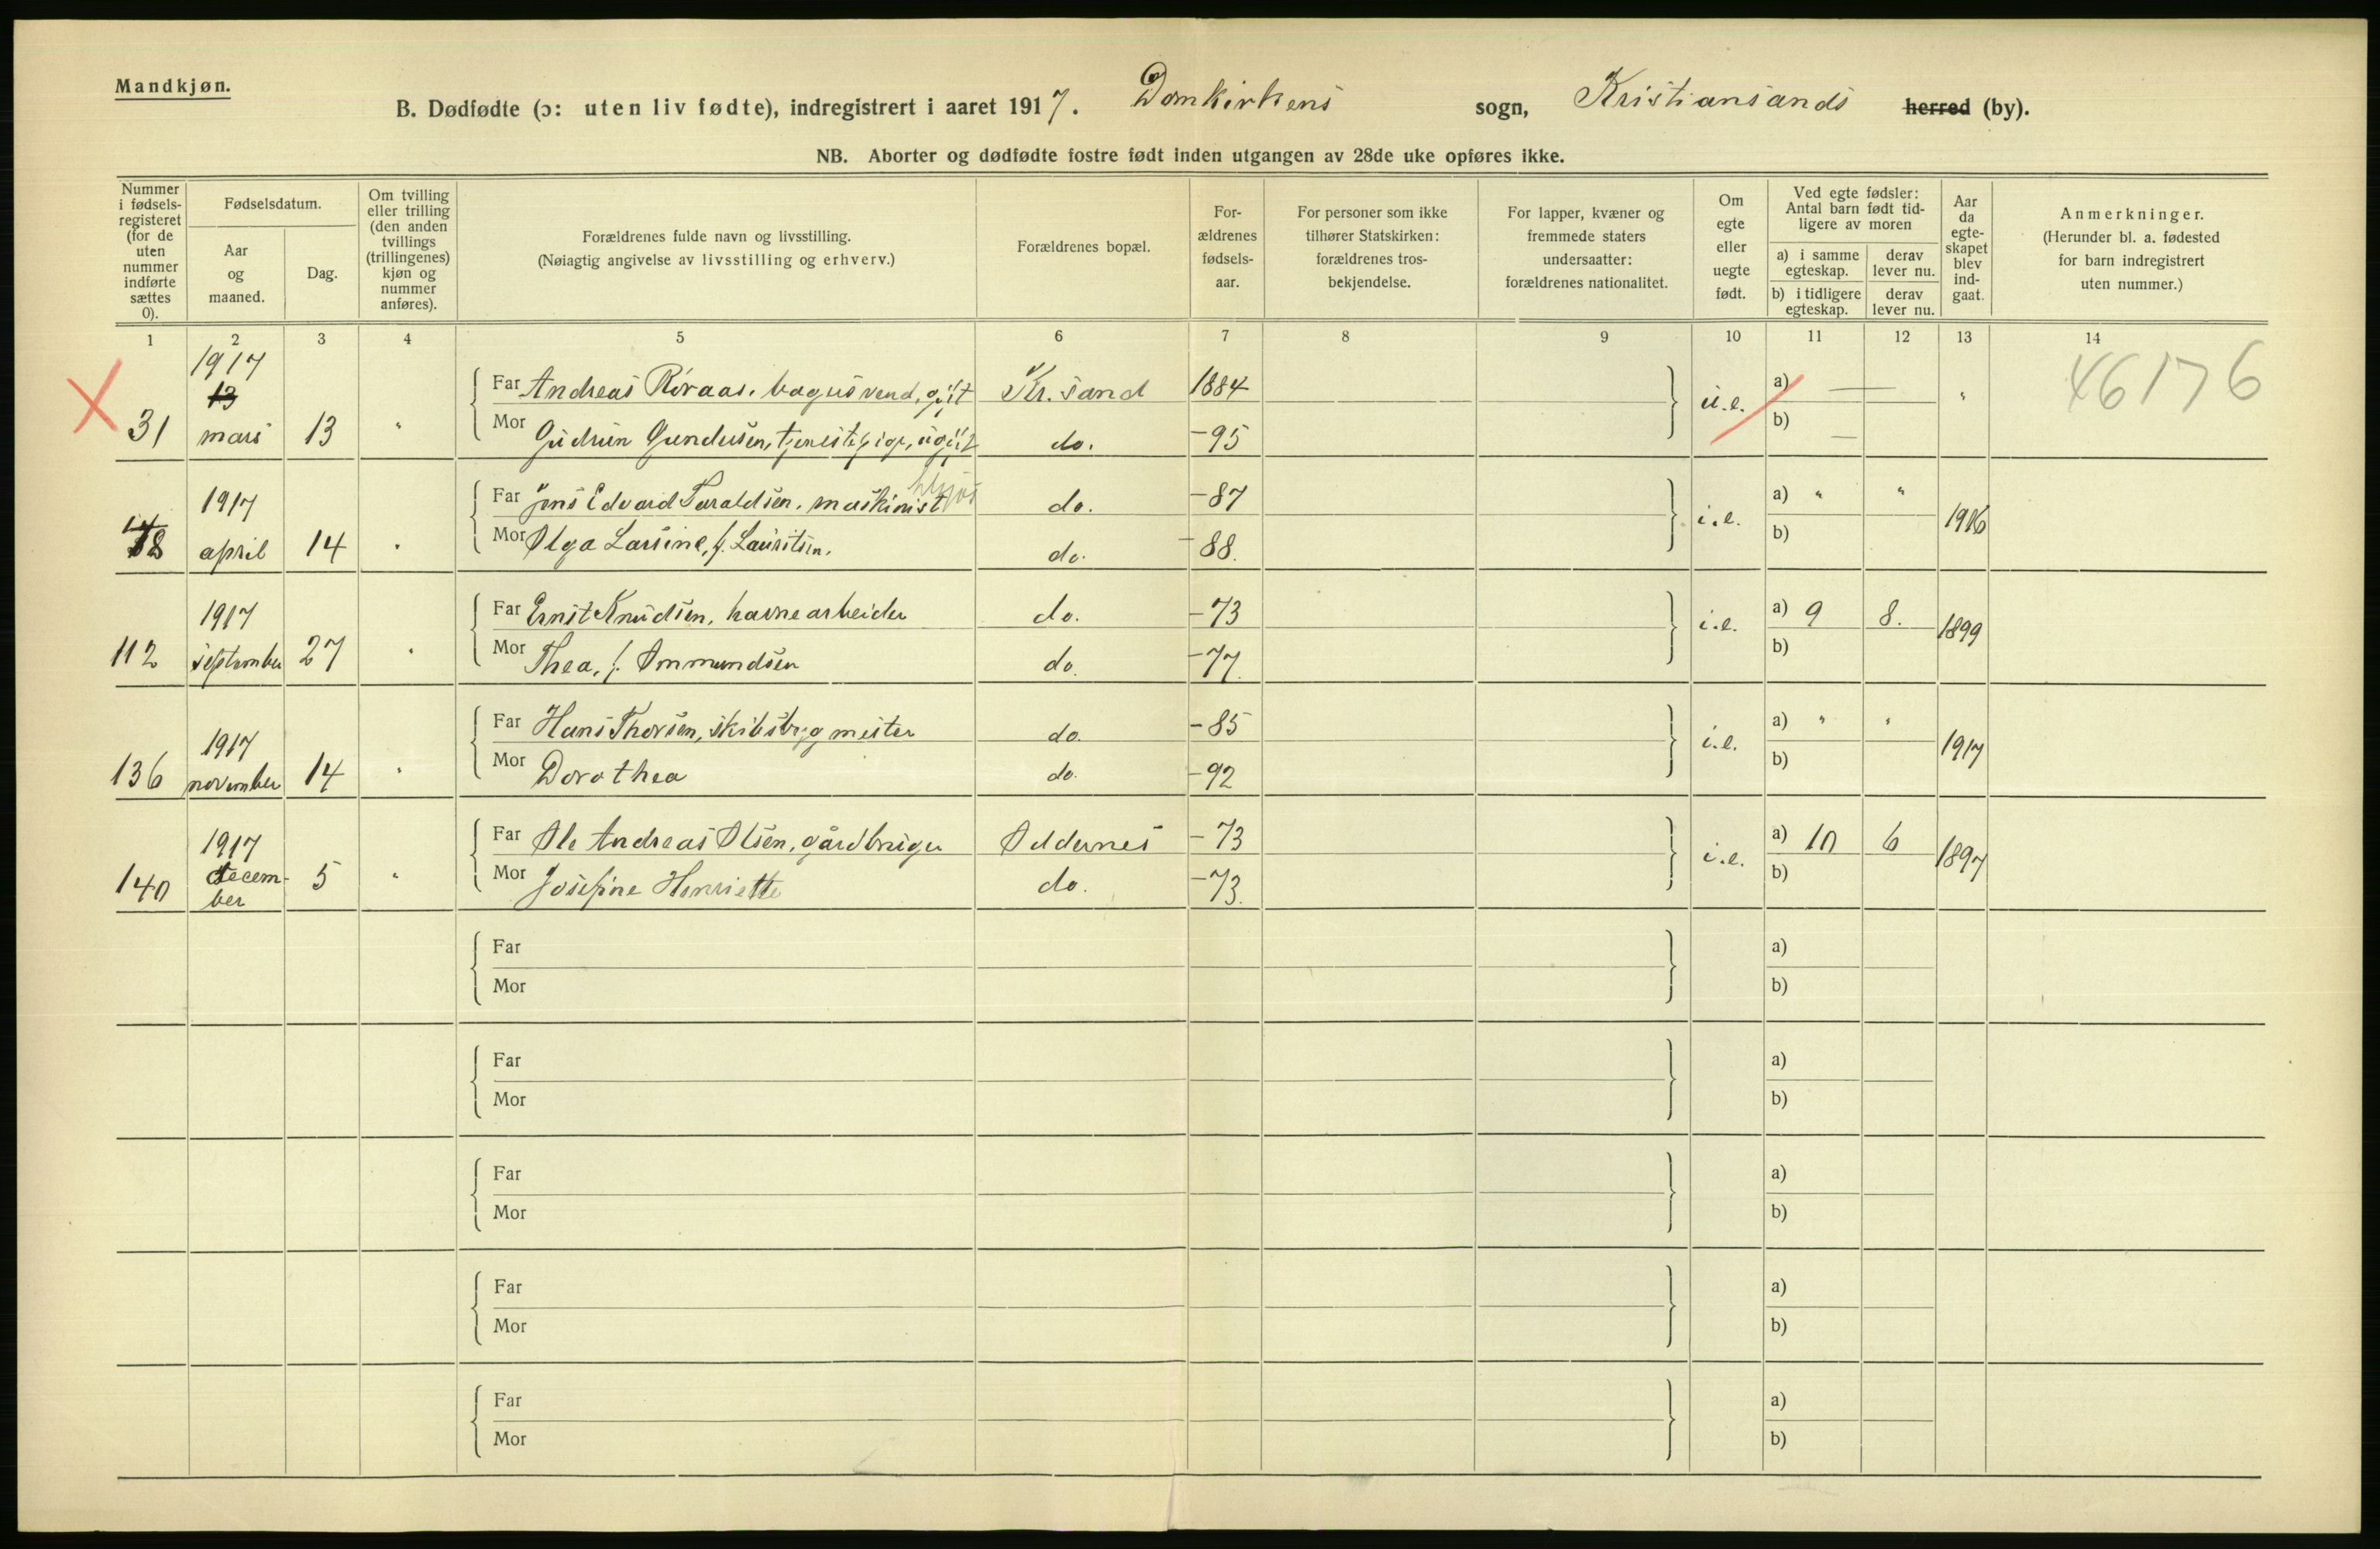 Mandkjøn.
B. Dødfødte (ɔ: uten liv fødte), indregistrert i aaret 1917. Domkirkens sogn, Kristiansands herred (by).
NB. Aborter og dødfødte fostre født inden utgangen av 28de uke opføres ikke.
Nummer i fødsels-registeret (for de uten nummer indførte sættes 0).
Fødselsdatum.
Aar og maaned.
Dag.
Om tvilling eller trilling (den anden tvillings (trillingenes) kjøn og nummer anføres).
Forældrenes fulde navn og livsstilling.
(Nøiagtig angivelse av livsstilling og erhverv.)
Forældrenes bopæl.
For-ældrenes fødsels-aar.
For personer som ikke tilhører Statskirken: forældrenes tros-bekjendelse.
For lapper, kvæner og fremmede staters undersaatter: forældrenes nationalitet.
Om egte eller uegte født.
Ved egte fødsler: Antal barn født tid-ligere av moren
a) i samme egteskap.
derav lever nu.
b) i tidligere egteskap.
derav lever nu.
Aar da egte-skapet blev ind-gaat.
Anmerkninger.
(Herunder bl. a. fødested for barn indregistrert uten nummer.)
1 2 3 4 5 6 7 8 9 10 11 12 13 14
1917
13
31 mars 13 "
Far Andreas Røraas, bagersvend, gift Kr.sand 1884
Mor Gudrun Gundersen, tjenestepige, ugift do. -95
u.e. a) — b) — "
46176
1917
april 14 "
Far Jens Edvard Taraldsen, maskinist do. -87
Mor Olga Larsine, f. Lauritsen. do. -88.
i.e. a) " " b) 1916
1917
112 september 27 "
Far Ernst Knudsen, havnearbeider do. -73
Mor Thea, f. Ommundsen do. -77.
i.e. a) 9 8. b) 1899
1917
136 november 14 "
Far Hans Thorsen, skibsbygmester do. -85
Mor Dorothea do. -92
i.e. a) " " b) 1917
1917
140 decem-ber 5 "
Far Ole Andreas Olsen, gårdbruger Oddernes -73
Mor Josefine Henriette do. -73.
i.e. a) 10 6 b) 1897
Far a)
Mor b)
Far a)
Mor b)
Far a)
Mor b)
Far a)
Mor b)
Far a)
Mor b)